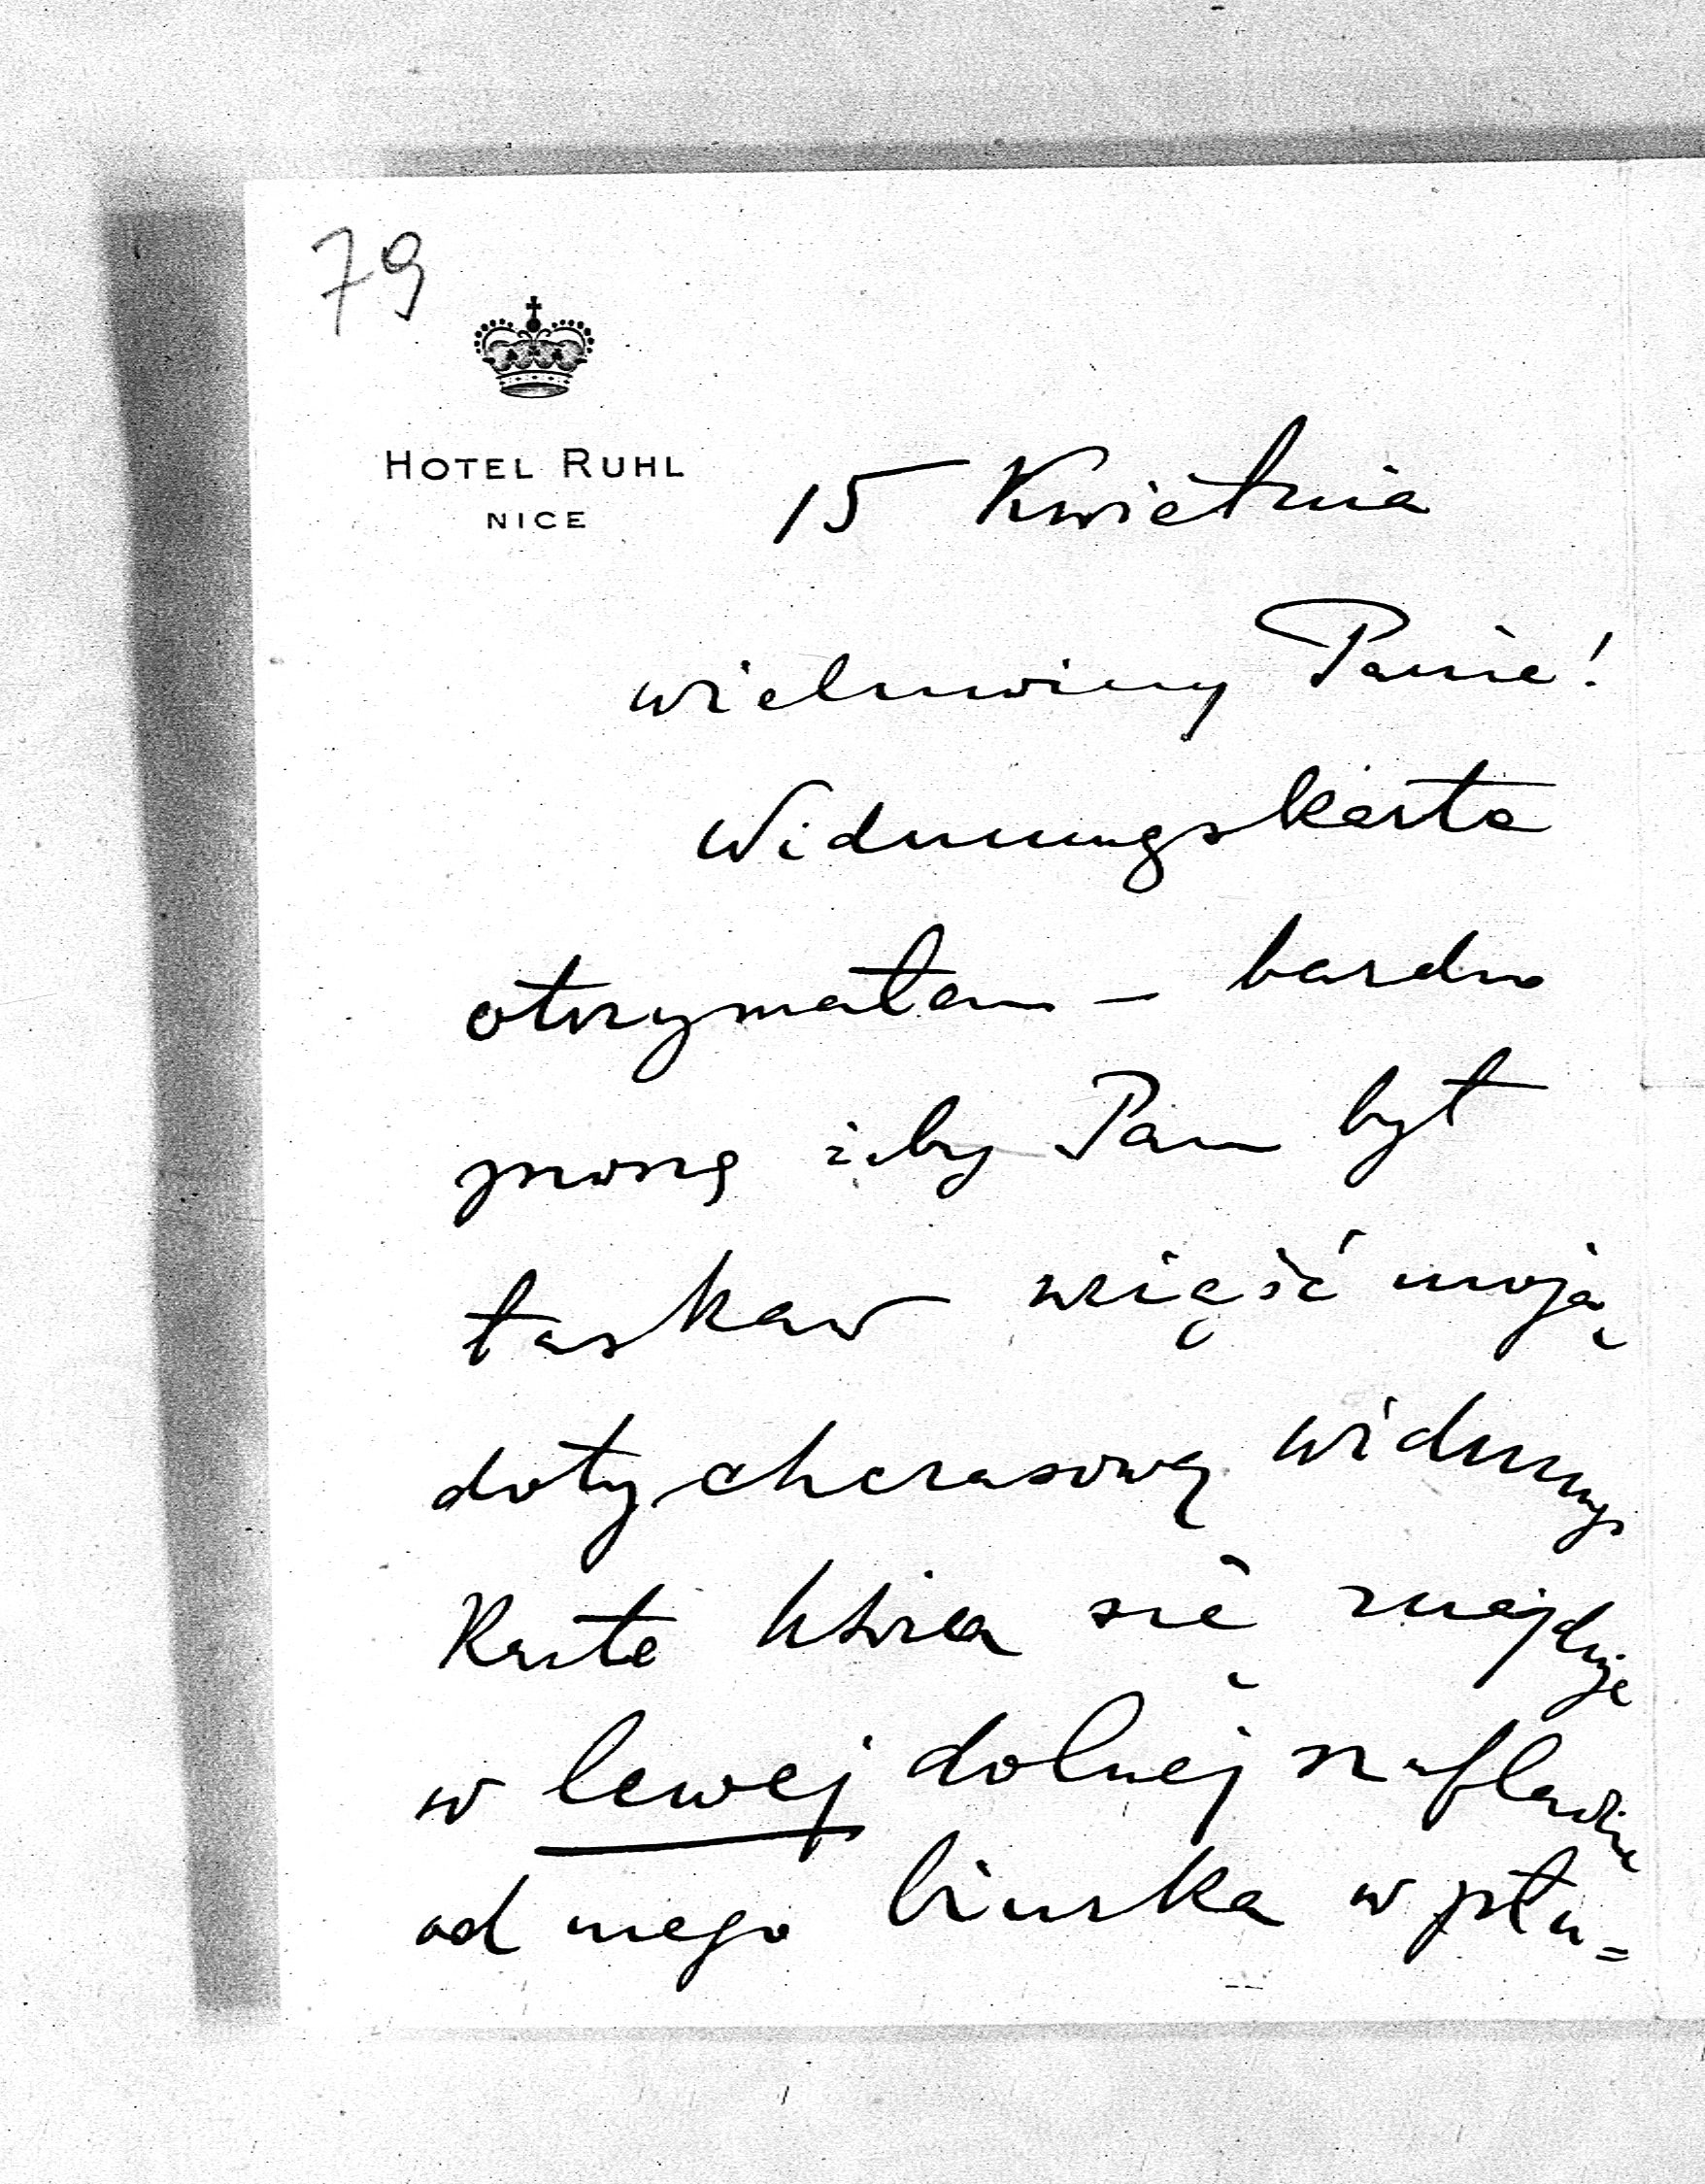 79
HOTEL RUHL
NICE
15 Kwietnia
wielmożny Panie!
Widmungskarta
otrzymałam – bardzo
proszę żeby Pan był
łaskaw wziąść moją
dotychczasową widmungs
Kartę która się znajduje
w lewej dolnej szufladzie
od mego biurka w płu=